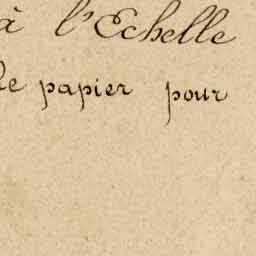 à l'Echelle
le papier pour